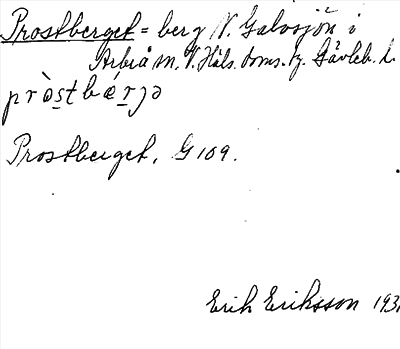 Prostberget = berg V. Galvsjön i
Arbrå sn. V. Häls. doms. tg. Gävleb. l.
pròstbærjə
Prostberget, G 109.
Erik Eriksson 193